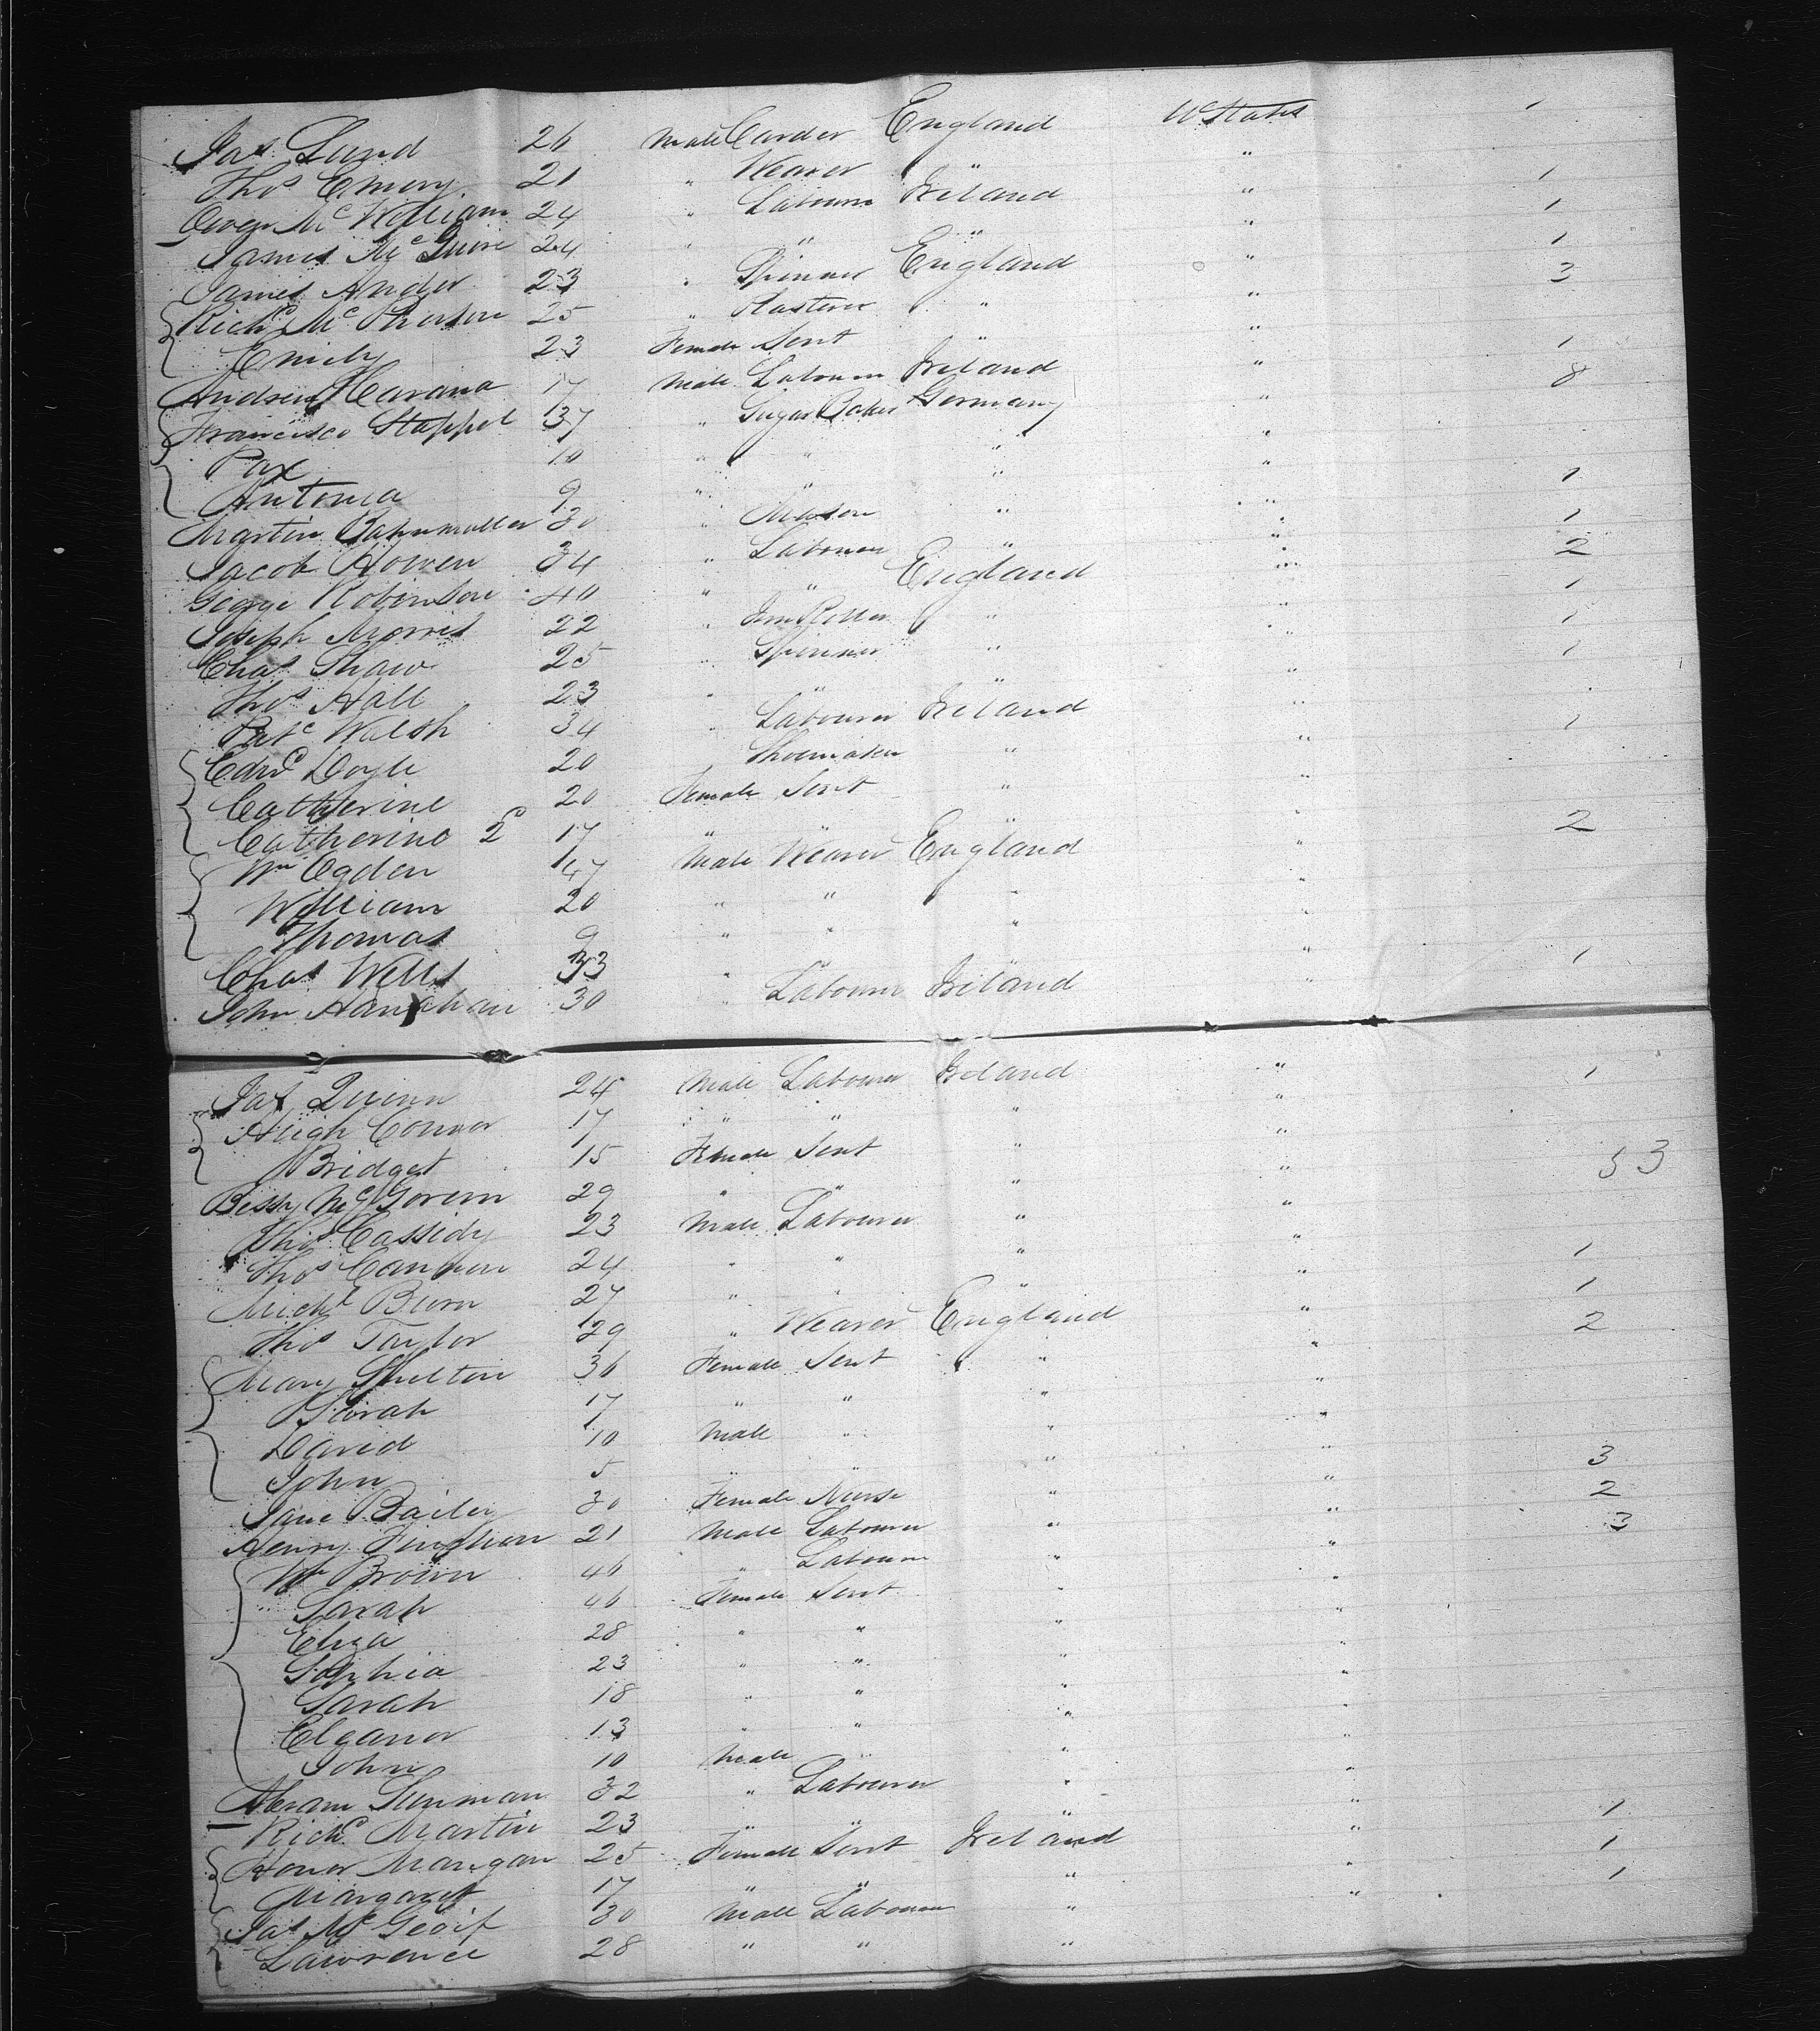 Jas Lund 26 Male Carder England U States 1
Thos Emery 21 " Weaver " " 1
Owen McWilliam 24 " Labourer Ireland " 1
James McGuire 24 " " " " 1
James Ander 23 " Spinner England " 3
Richd McPherson 25 " Plasterer " "
Emily 23 Female Servt " 1
Andrew Havana 17 Male Labourer Ireland " 8
Francisco Stappel 37 " Sugar Baker Germany "
Pax 10 " " " "
Antonia 9 " " " " 1
Martin Bahnmuller 30 " Mason " " 1
Jacob Howen 34 " Labourer " " 2
George Robinson 40 " " England " 1
Joseph Morris 22 " Iron Roller " " 1
Chas Shaw 25 " Spinner " " 1
Thos Hall 23 " " " "
Patc Walsh 34 " Labourer Ireland " 1
Edwd Doyle 20 Shoemaker " "
Catherine 20 Female Servt " "
Catherine 2d 17 " " " 2
Wm Ogden 47 Male Weaver England "
William 20 " " " "
Thomas 9 " " " "
Chas Wells 33 " " " 1
John Hanahan 30 " Labourer Ireland "
Jas Quinn 24 Male Labourer Ireland " 1
Hugh Connor 17 " " " "
Bridget 15 Female Servt " " 3
Bessy McGovern 29 " " " "
Thos Cassidy 23 Male Labourer " "
Thos 24 " " " " 1
Michl Burn 27 " " " " 1
Thos Taylor 29 " Weaver England " 2
Mary Shelton 36 Female Servt " "
Sarah 17 " " " "
David 10 Male " " "
John 5 " " " " 3
Jane Bailey 30 Female Nurse " " 2
Henry 21 Male Labourer " " 3
Wm Brown 46 " Labourer " "
Sarah 46 Female Servt " "
Eliza 28 " " " "
Sophia 23 " " " "
Sarah 18 " " " "
Eleanor 13 " " " "
John 10 Male " " "
Abram Sunman 32 " Labourer " "
Richd Martin 23 " " " " 1
Honor Mangan 25 Female Servt Ireland " 1
Margaret 17 " " " " 1
Jas 30 Male Labourer "
Lawrence 28 " " "